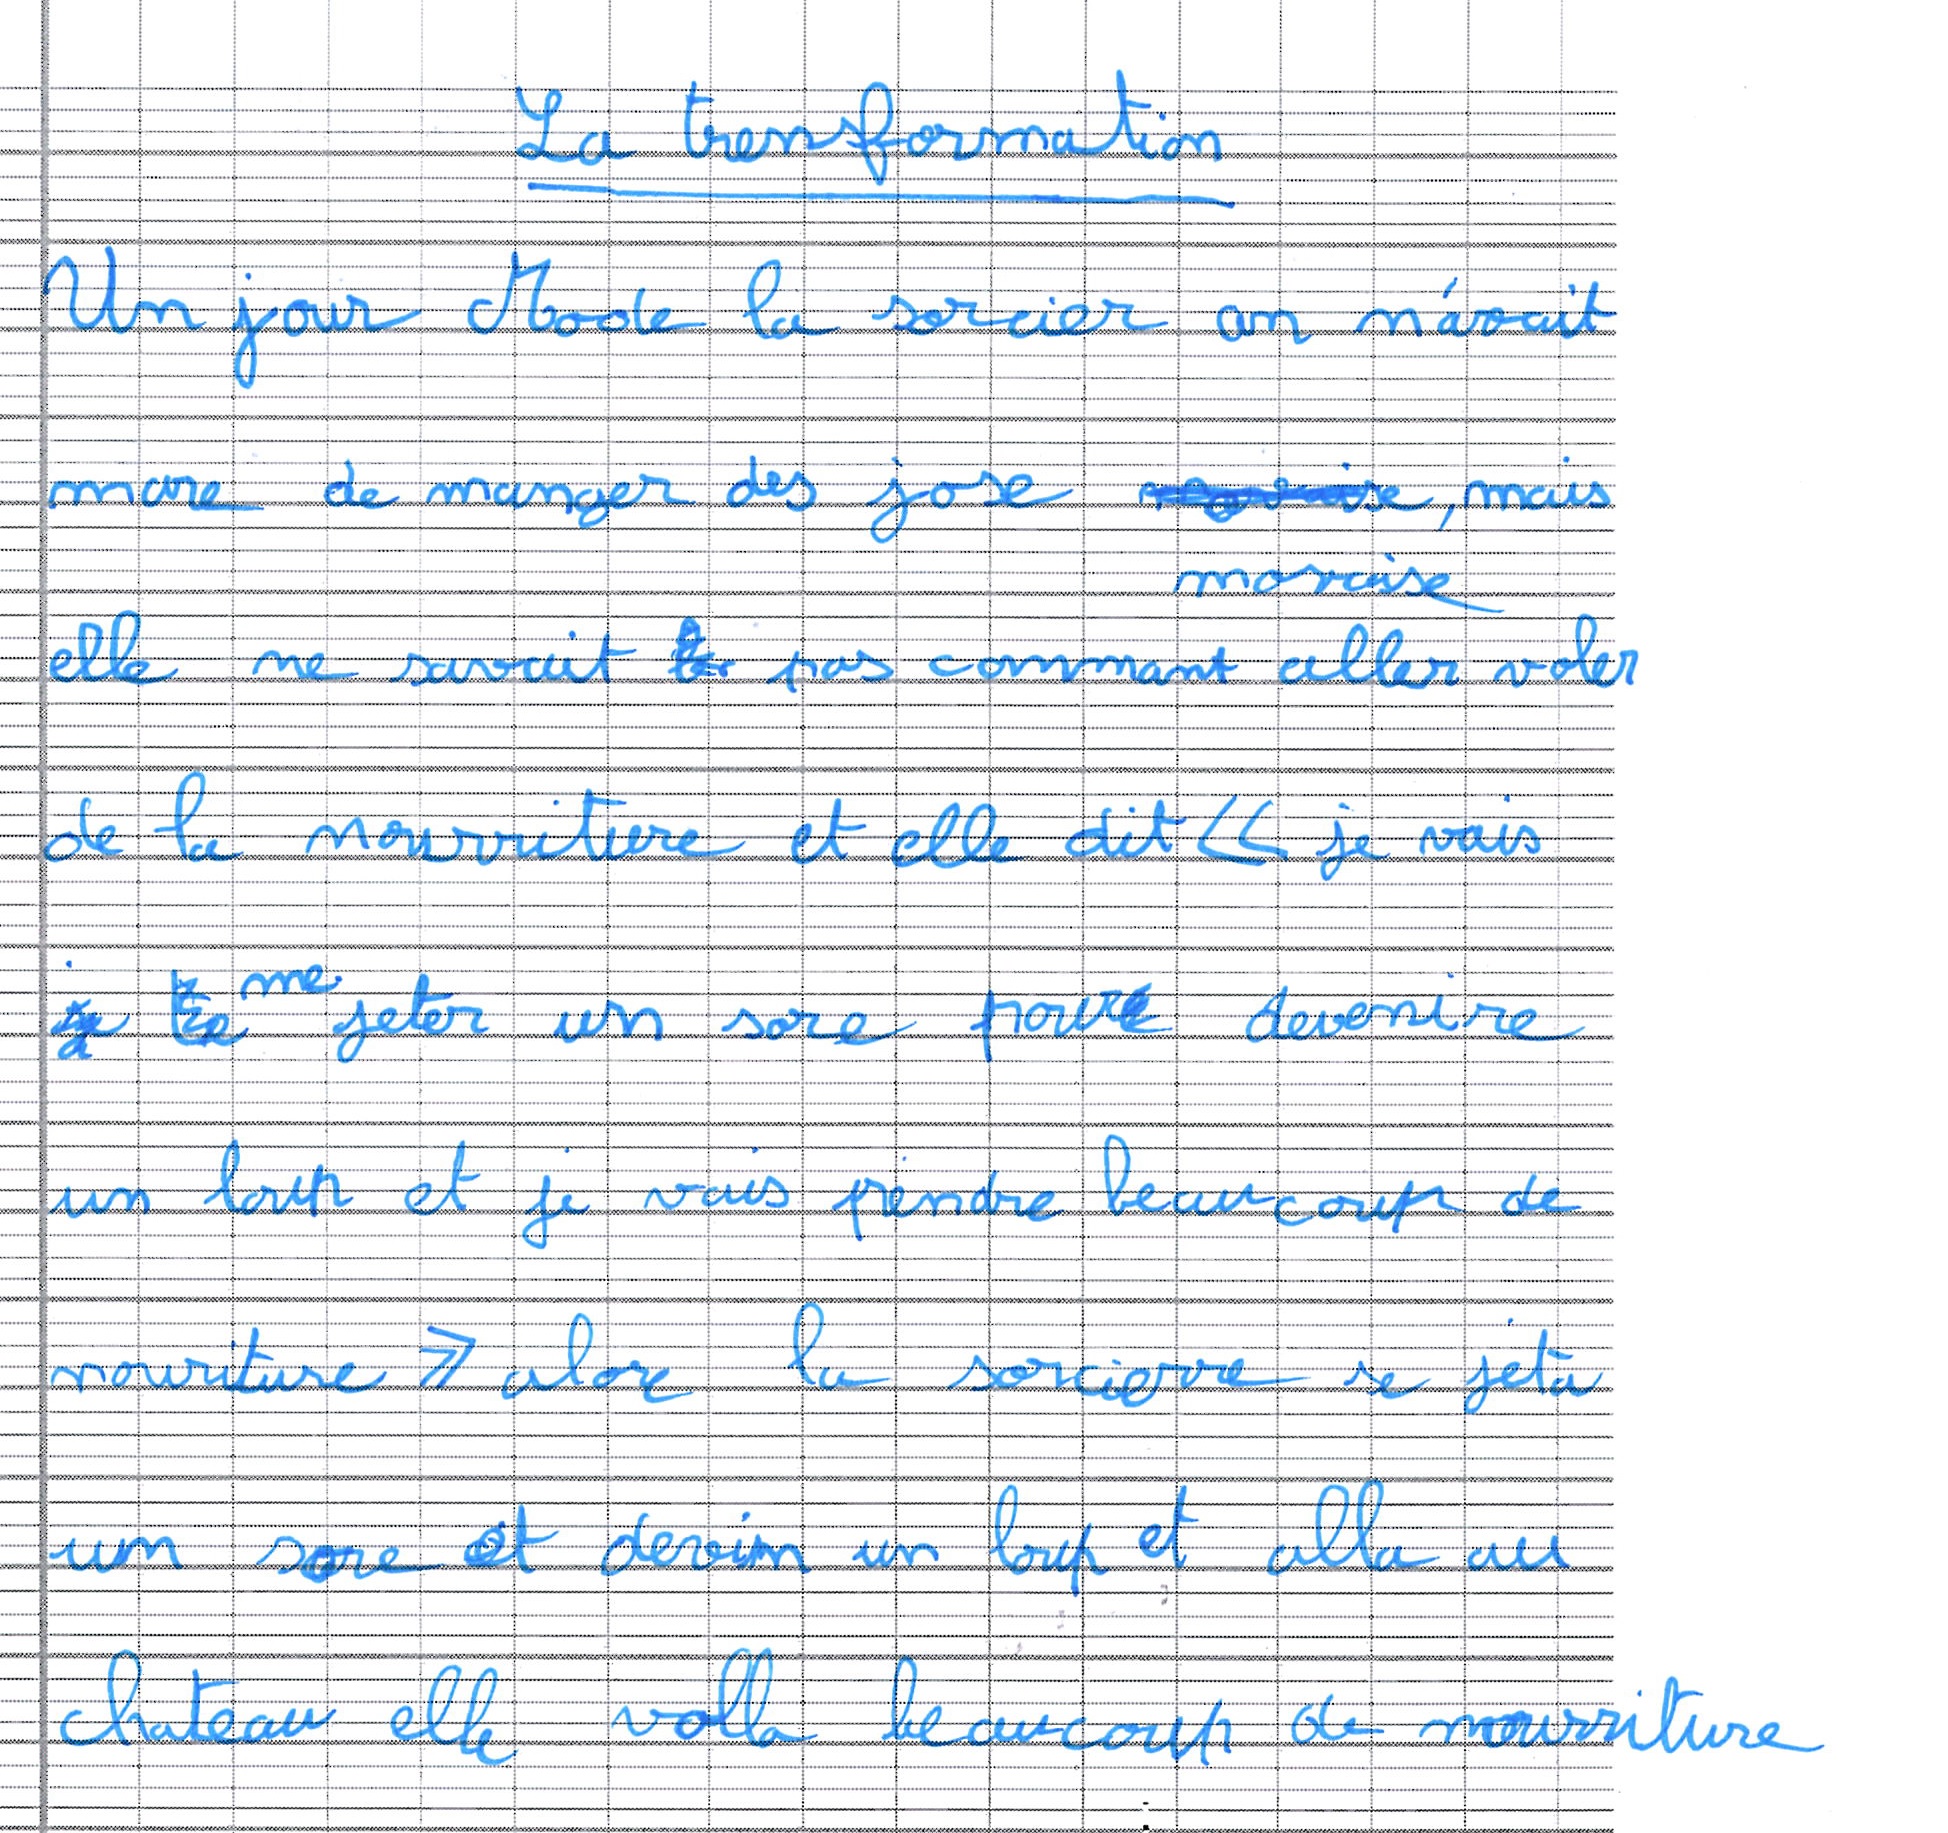 La trensformation
Un jour Mode la sorcier an n'avait
mare de manger des jose , mais
movaise
elle ne savait pas commant aller voler
de la nourriture et elle dit << je vais
me jeter un sore pour devenire
un loup et je vais prendre beaucoup de
nouriture >> alore la sorcierre se jeta
um sore et devoin un loup et alla au
chateau elle volla beaucoup de nourriture